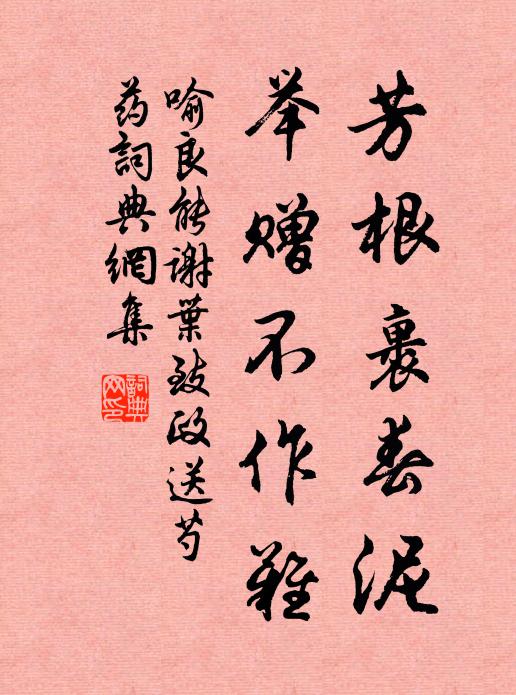 芳根裹春泥
举赠不作难
喻良能谢葉致政送芍
药詞典網集
詞典网印